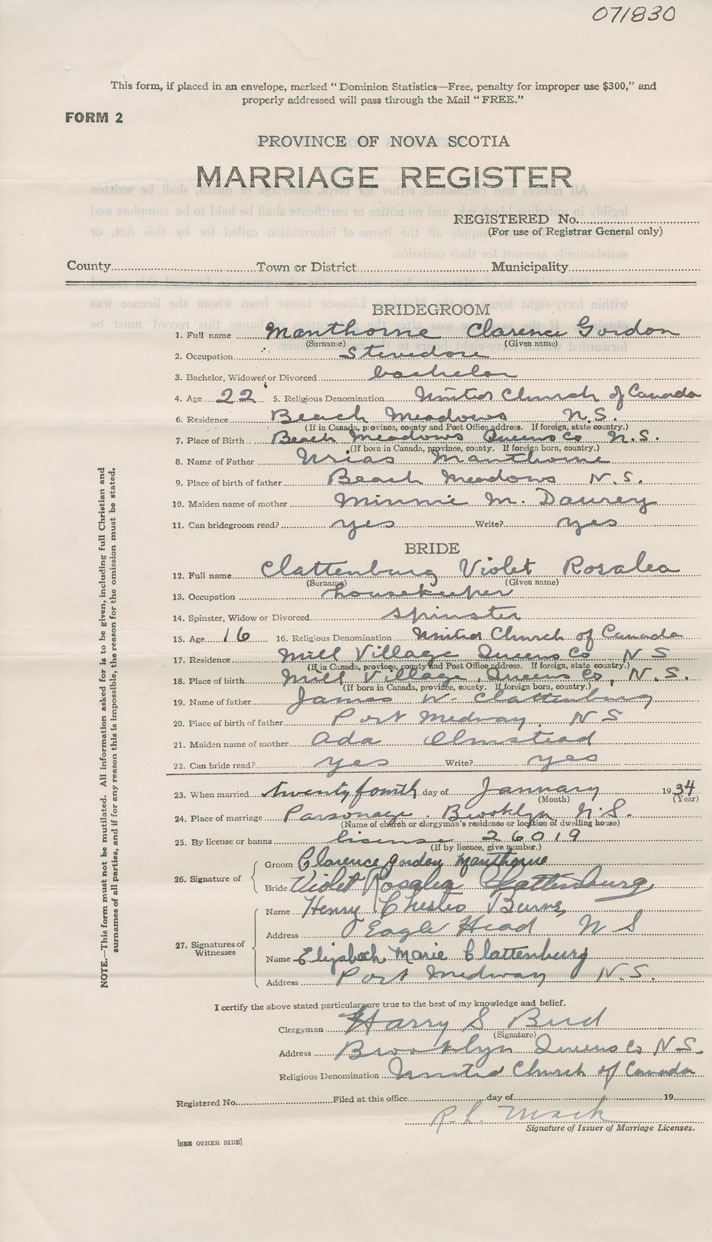 071830
This form, if placed in an envelope, marked "Dominion Statistics—Free, penalty for improper use $300," and
properly addressed will pass through the Mail "FREE."
FORM 2
PROVINCE OF NOVA SCOTIA
MARRIAGE REGISTER
REGISTERED No.
(For use of Registrar General only)
County Town or District Municipality
BRIDEGROOM
1. Full name Manthorne Clarence Gordon
(Surname) (Given name)
2. Occupation Stevedore
3. Bachelor, Widower or Divorced bachelor
4. Age 22 5. Religious Denomination United Church of Canada
6. Residence Beach Meadows N.S.
(If in Canada, province, county and Post Office address. If foreign, state country.)
7. Place of Birth Beach Meadows Queens Co N.S.
(If born in Canada, province, county. If foreign born, country.)
8. Name of Father Urias Manthorne
9. Place of birth of father Beach Meadows N.S.
10. Maiden name of mother Minnie M. Daurey
11. Can bridegroom read? yes Write? yes
BRIDE
12. Full name Clattenburg Violet Rosalea
(Surname) (Given name)
13. Occupation housekeeper
14. Spinster, Widow or Divorced spinster
15. Age 16 16. Religious Denomination United Church of Canada
17. Residence Mill Village Queens Co N S
(If in Canada, province, county and Post Office address. If foreign, state country.)
18. Place of birth Mill Village, Queens Co, N.S.
(If born in Canada, province, county. If foreign born, country.)
19. Name of father James W. Clattenburg
20. Place of birth of father Port Medway, N S
21. Maiden name of mother Ada Olmstead
22. Can bride read? yes Write? yes
23. When married twenty fourth day of January 1934
(Month) (Year)
24. Place of marriage Parsonage. Brooklyn N.S.
(Name of church or clergyman's residence or location of dwelling house)
25. By license or banns license 26019
(If by licence, give number.)
26. Signature of Groom Clarence gordon Manthorne
Bride Violet Rosalea Clattenburg
27. Signatures of Witnesses
Name Henry Chesley
Address Eagle Head N S
Name Elizabeth Marie Clattenburg
Address Port Medway N.S.
I certify the above stated particulars are true to the best of my knowledge and belief.
Clergyman Harry S Bird
(Signature)
Address Brooklyn Queens Co N.S.
Religious Denomination United Church of Canada
Registered No. Filed at this office day of 19
R. L. Mack
Signature of Issuer of Marriage Licenses.
[SEE OTHER SIDE]
NOTE.—This form must not be mutilated. All information asked for is to be given, including full Christian and
surnames of all parties, and if for any reason this is impossible, the reason for the omission must be stated.